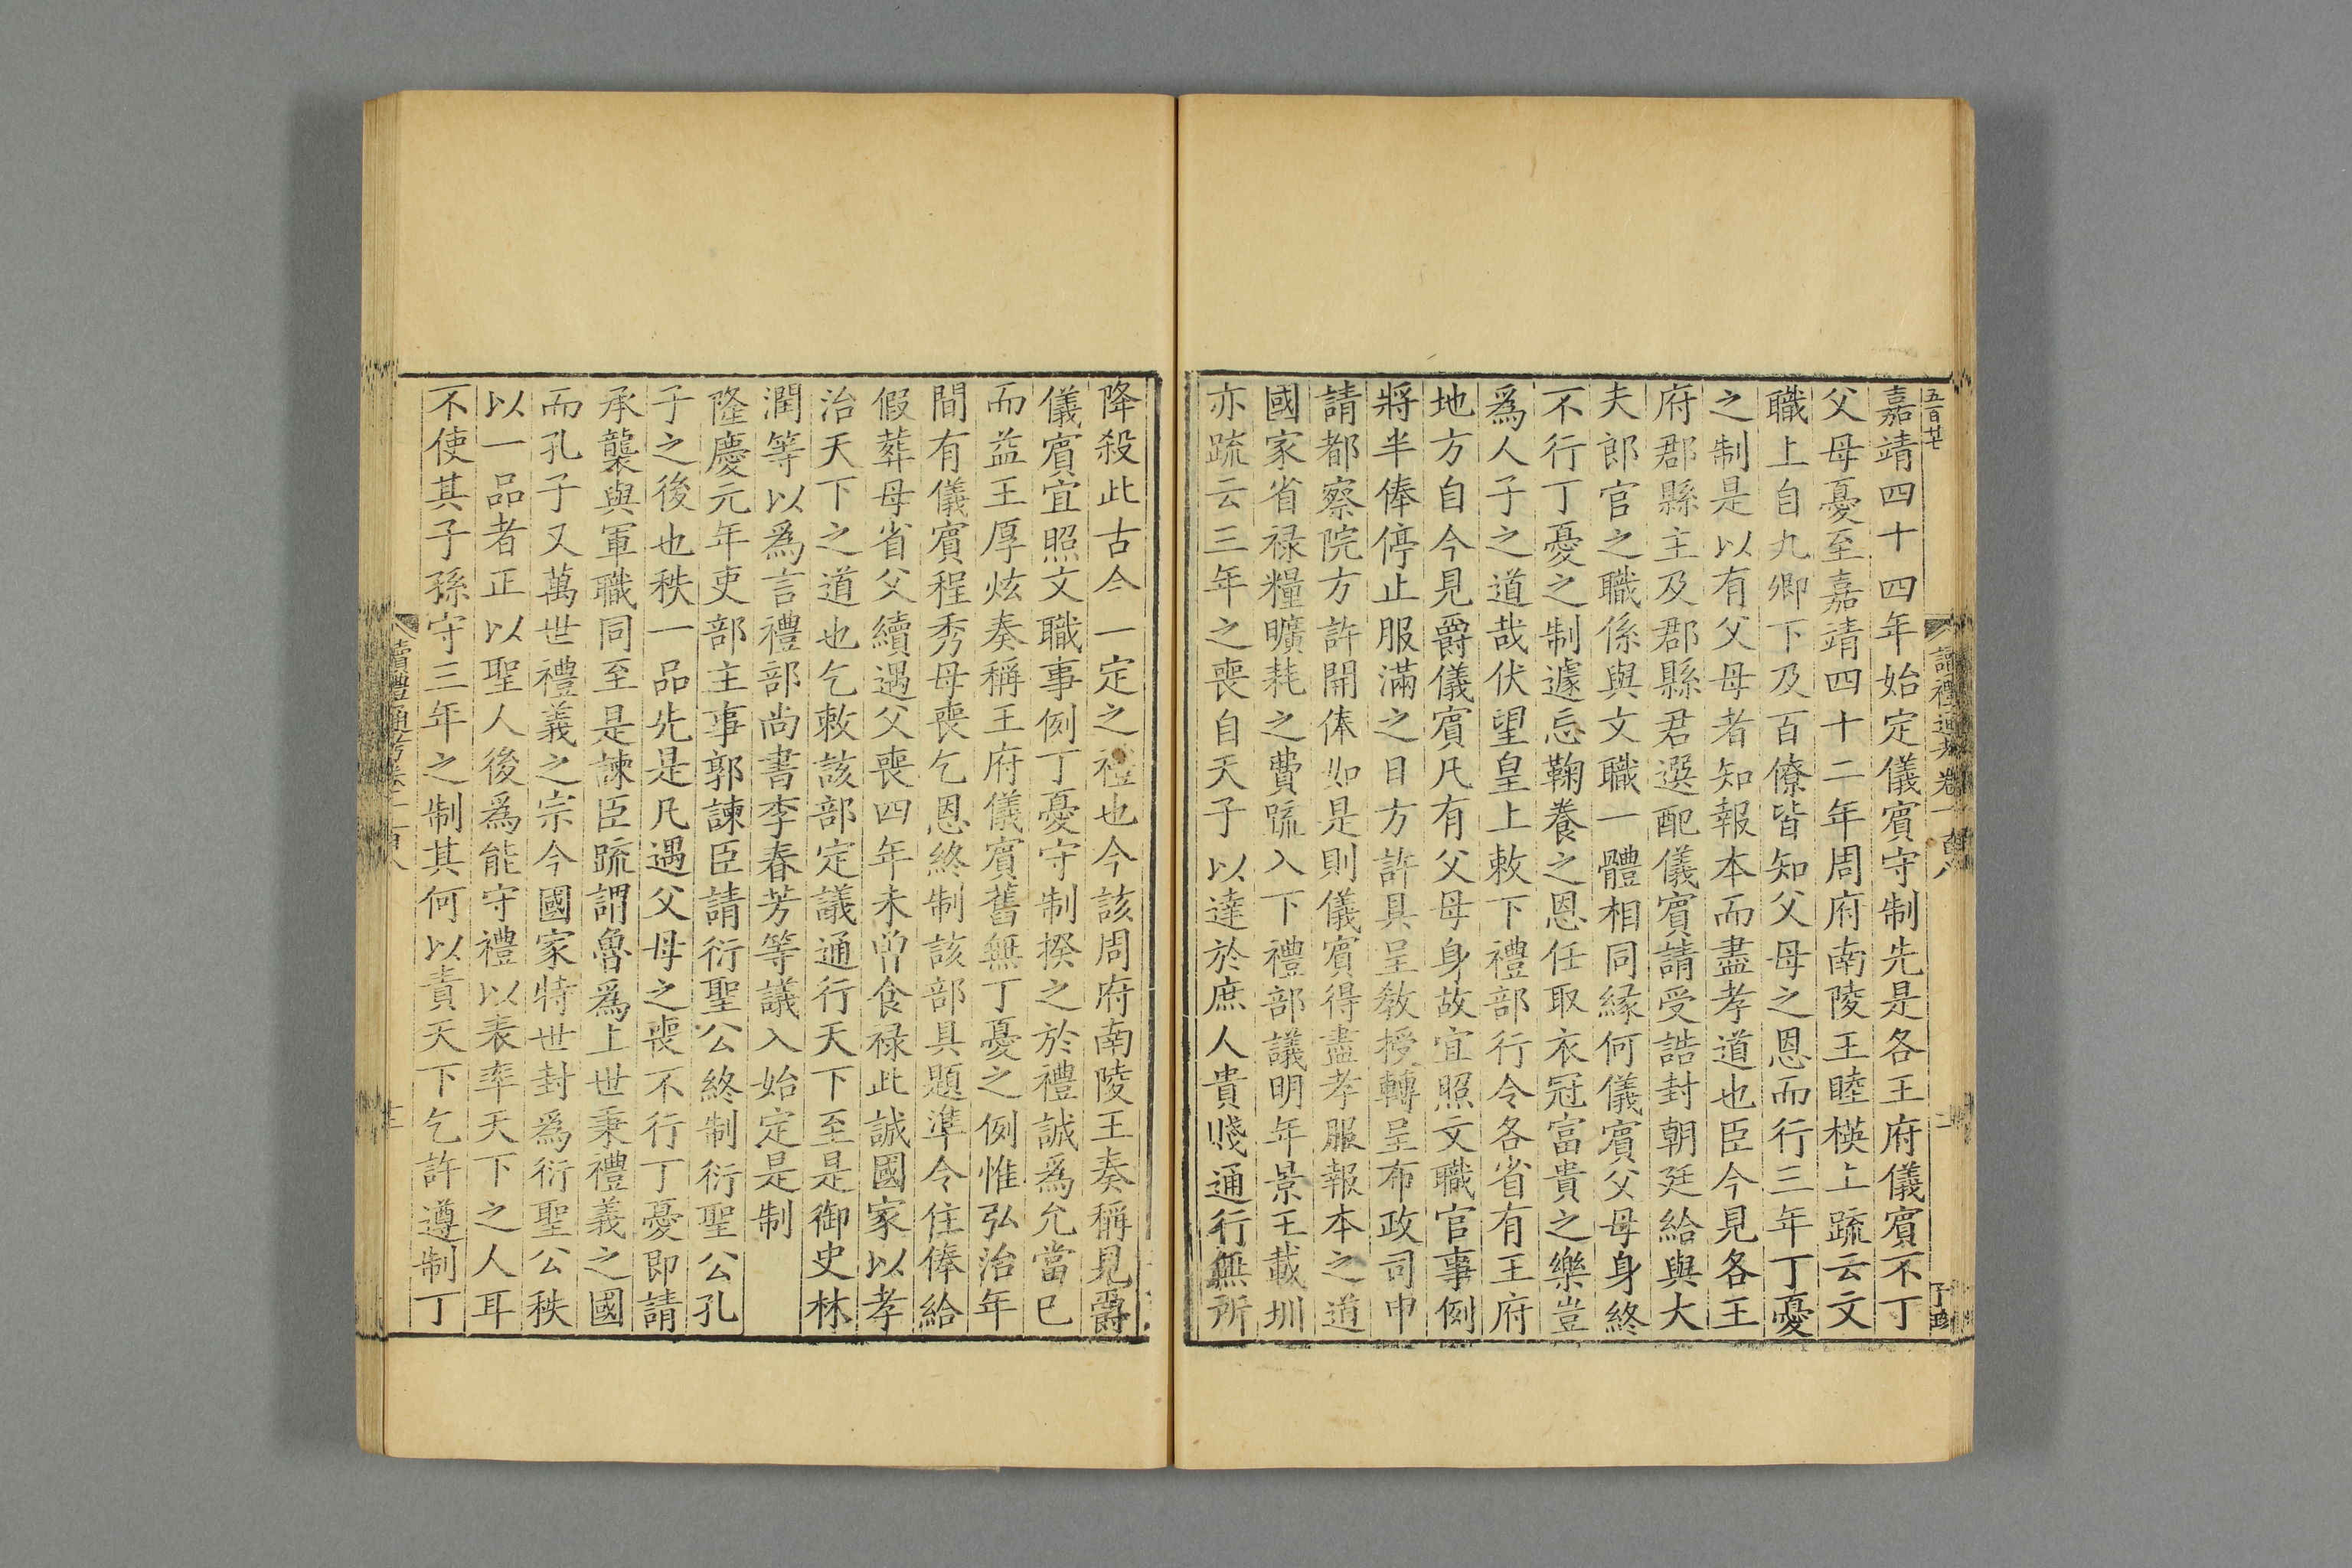 五百廿七
讀禮通考卷一百八
嘉靖四十四年始定儀賓守制先是各王府儀賓不丁
父母憂至嘉靖四十二年周府南陵王睦楧上疏云文
職上自九卿下及百僚皆知父母之恩而行三年丁憂
之制是以有父母者知報本而盡孝道也臣今見各王
府郡縣主及郡縣君選配儀賓請受誥封朝廷給與大
夫郎官之職係與文職一體相同緣何儀賓父母身終
不行丁憂之制遽忘鞠養之恩任取衣冠富貴之樂豈
爲人子之道哉伏望皇上敕下禮部行令各省有王府
地方自今見爵儀賓凡有父母身故宜照文職官事例
將半俸停止服滿之日方許具呈教授轉呈布政司申
請都察院方許開俸如是則儀賓得盡孝服報本之道
國家省祿糧曠耗之費疏入下禮部議明年景王載圳
亦疏云三年之喪自天子以達於庶人貴賤通行無所
降殺此古今一定之禮也今該周府南陵王奏稱見爵
儀賓宜照文職事例丁憂守制揆之於禮誠爲允當已
而益王厚炫奏稱王府儀賓舊無丁憂之例惟弘治年
間有儀賓程秀母喪乞恩終制該部具題準令住俸給
假葬母省父續遇父喪四年未曾食祿此誠國家以孝
治天下之道也乞敕該部定議通行天下至是御史林
潤等以爲言禮部尚書李春芳等議入始定是制
隆慶元年吏部主事郭諫臣請衍聖公終制衍聖公孔
子之後也秩一品先是凡遇父母之喪不行丁憂即請
承襲與軍職同至是諫臣疏謂魯爲上世秉禮義之國
而孔子又萬世禮義之宗今國家特世封爲衍聖公秩
以一品者正以聖人後爲能守禮以表率天下之人耳
不使其子孫守三年之制其何以責天下乞許遵制丁
讀禮通考卷一百八